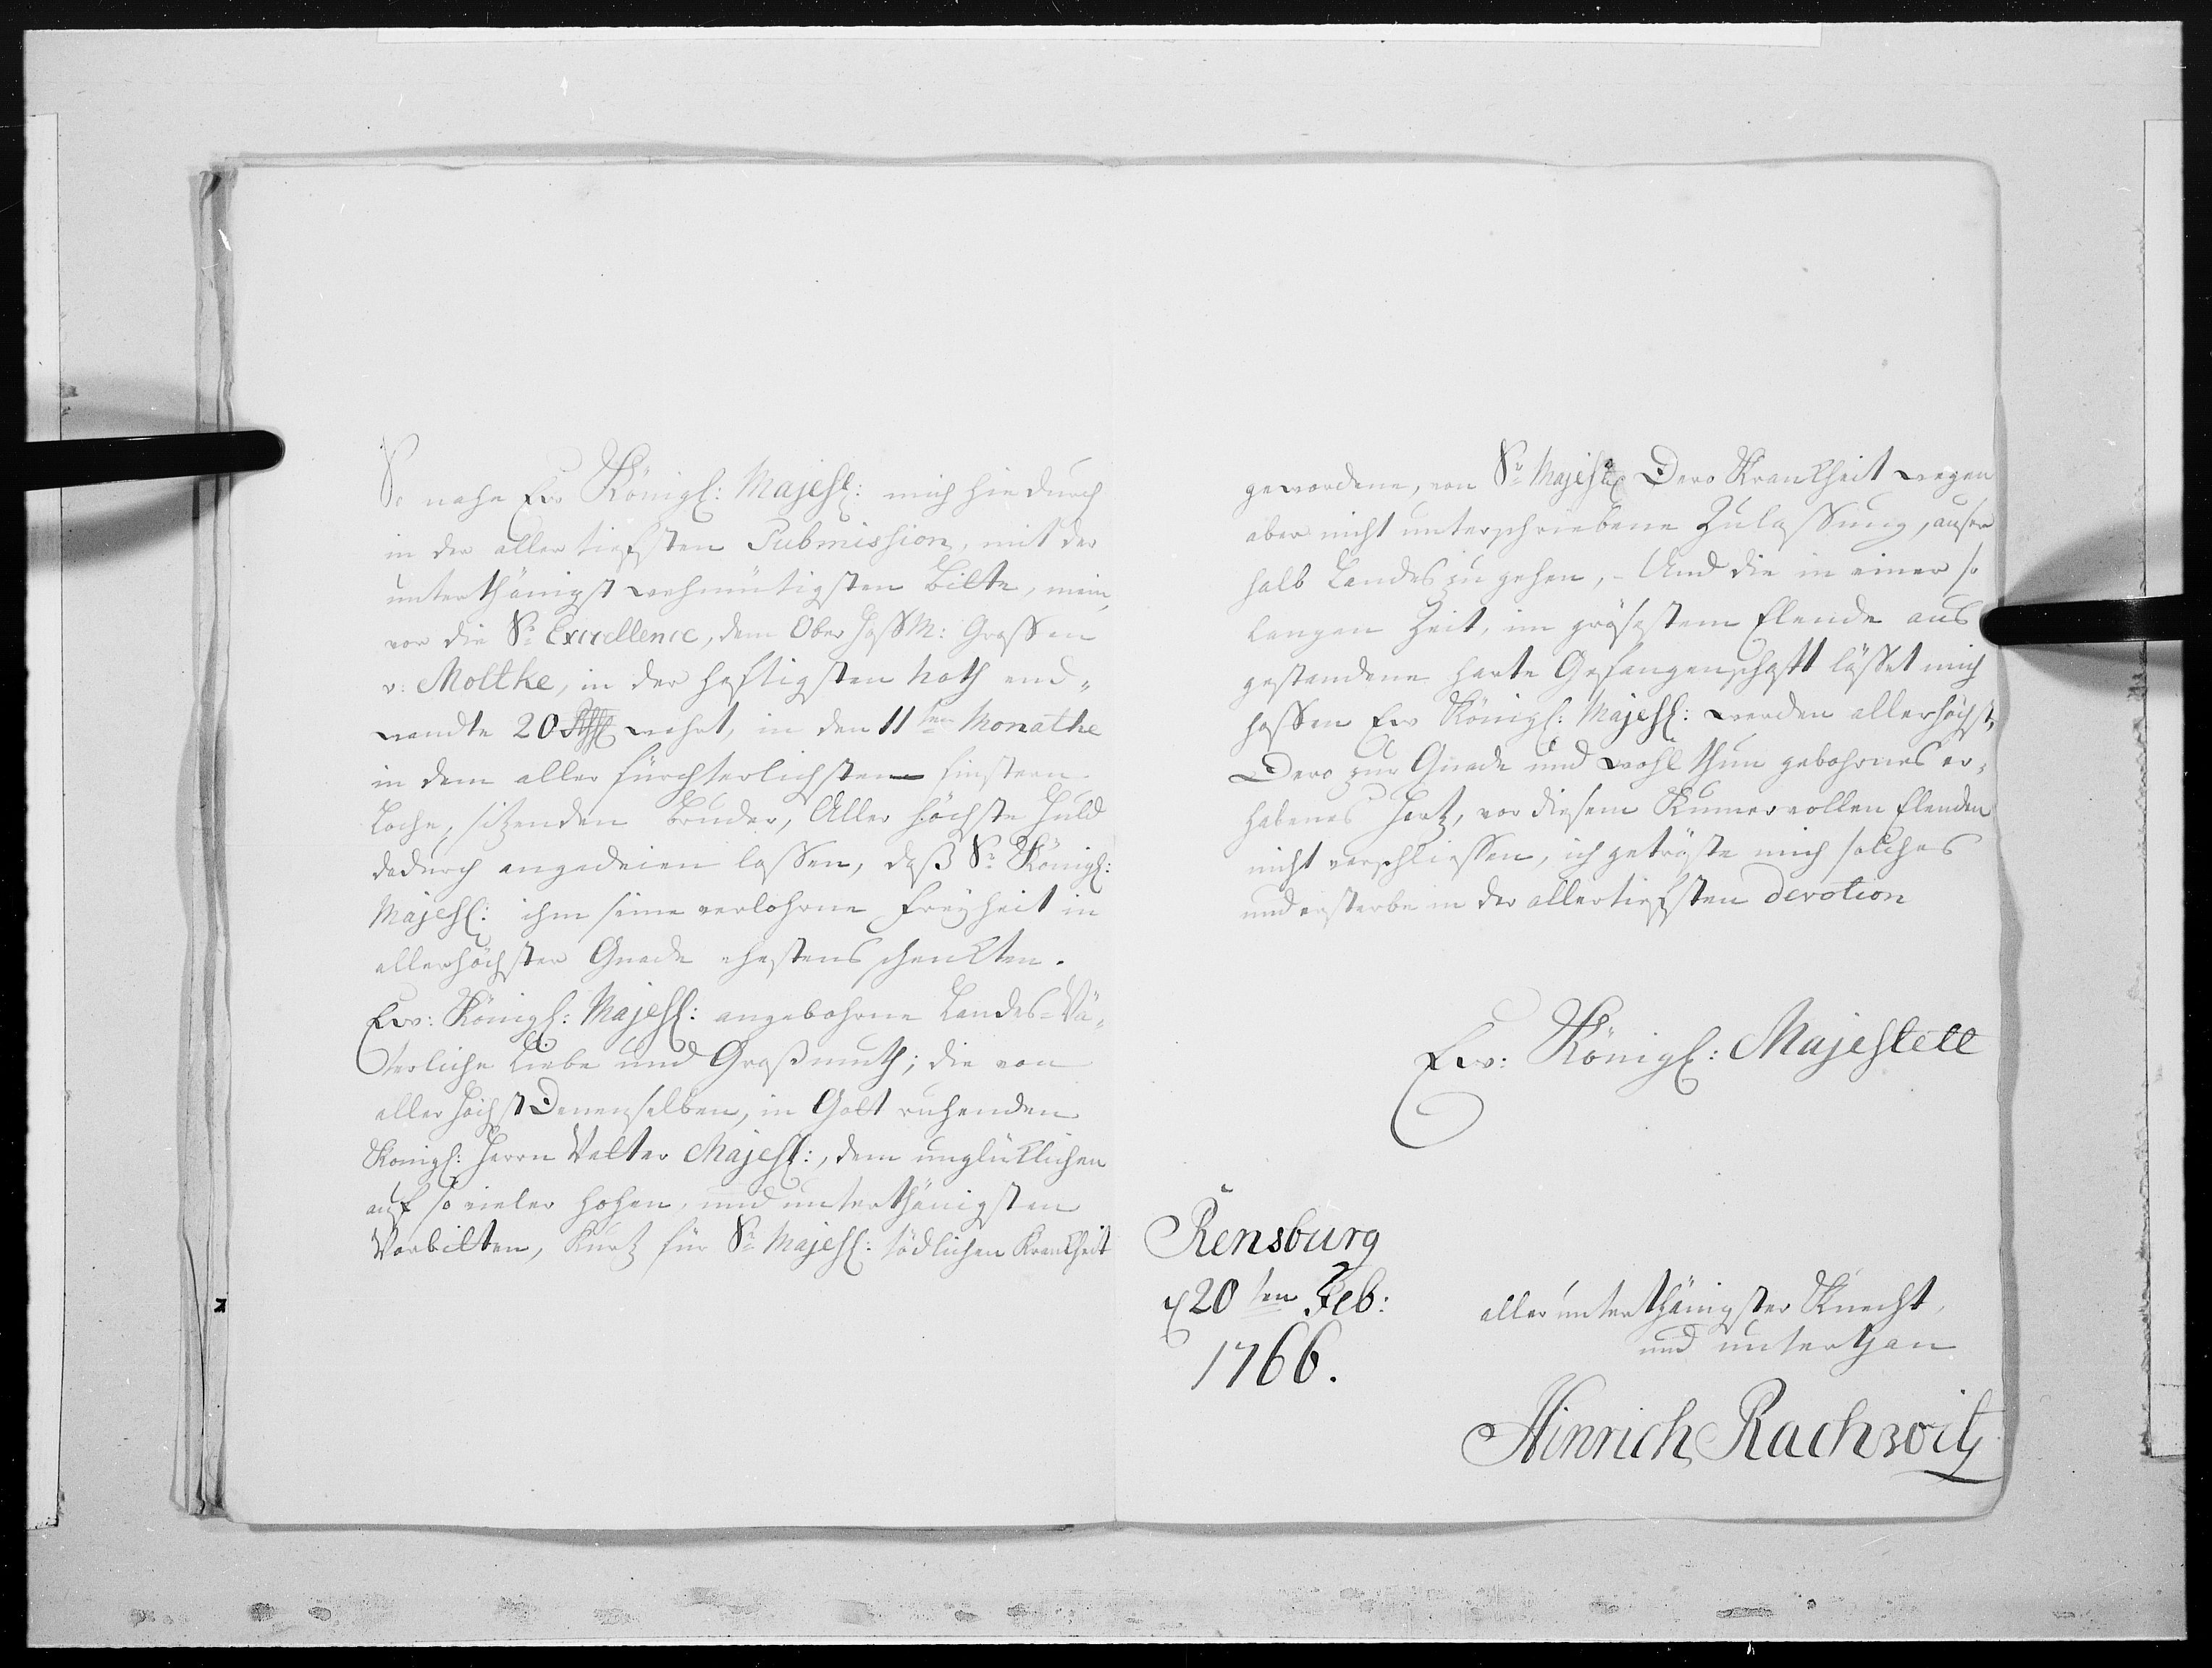 So nahe Ew Königl: Majest: mich hiedurch
in der aller tiefsten Submission, mit der
unterthänigst wehmütigsten Bitte, mein,
vor die Sr: Excellence, dem Ober Hoff M: Graffen
v: Moltke, in der hefftigsten Noth end„
wandte 20 werht, in den 11ten Monathe
in dem aller fürchterlichsten finstern
Loche, sitzenden Bruder, Aller höchste Huld
dadurch angedeien lassen, daß Sr: Königl:
Majest: ihm seine verlohrne Freyheit in
allerhöchster Gnade ehestens schenkten.
Ew: Königl: Majest: angebohrne Landes-Vä„
terliche Liebe und Großmuth; die von
aller höchst Denenselben, in Gott ruhenden
Königl: Herrn Vatter Majest:, dem unglücklichen
auf so vieler hohen, und unterthänigsten
Vorbitten, Kurtz für Sr: Majest: tödlichen Krankheit
gewordene, von Sr: Majest: Dero Krankheit wegen
aber nicht unterschriebene Zulassung, außer
halb Landes zu gehen, - Und die in einer so
langen Zeit, im größestem Elende aus
gestandene harte Gefangenschafft lässet mich
hoffen Ew Königl: Majest: werden allerhöchst„
Dero zur Gnade und wohl thun gebohrnes er„
habenes Hertz, vor diesem Kumervollen Elenden
nicht verschliessen, ich getröste mich solches
und ersterbe in der allertiefsten devotion
Ew: Königl: Majestett
Rensburg
d 20ten Feb:
1766.
aller unterthänigster Knecht,
und unterthan
Hinrich Rachwitz